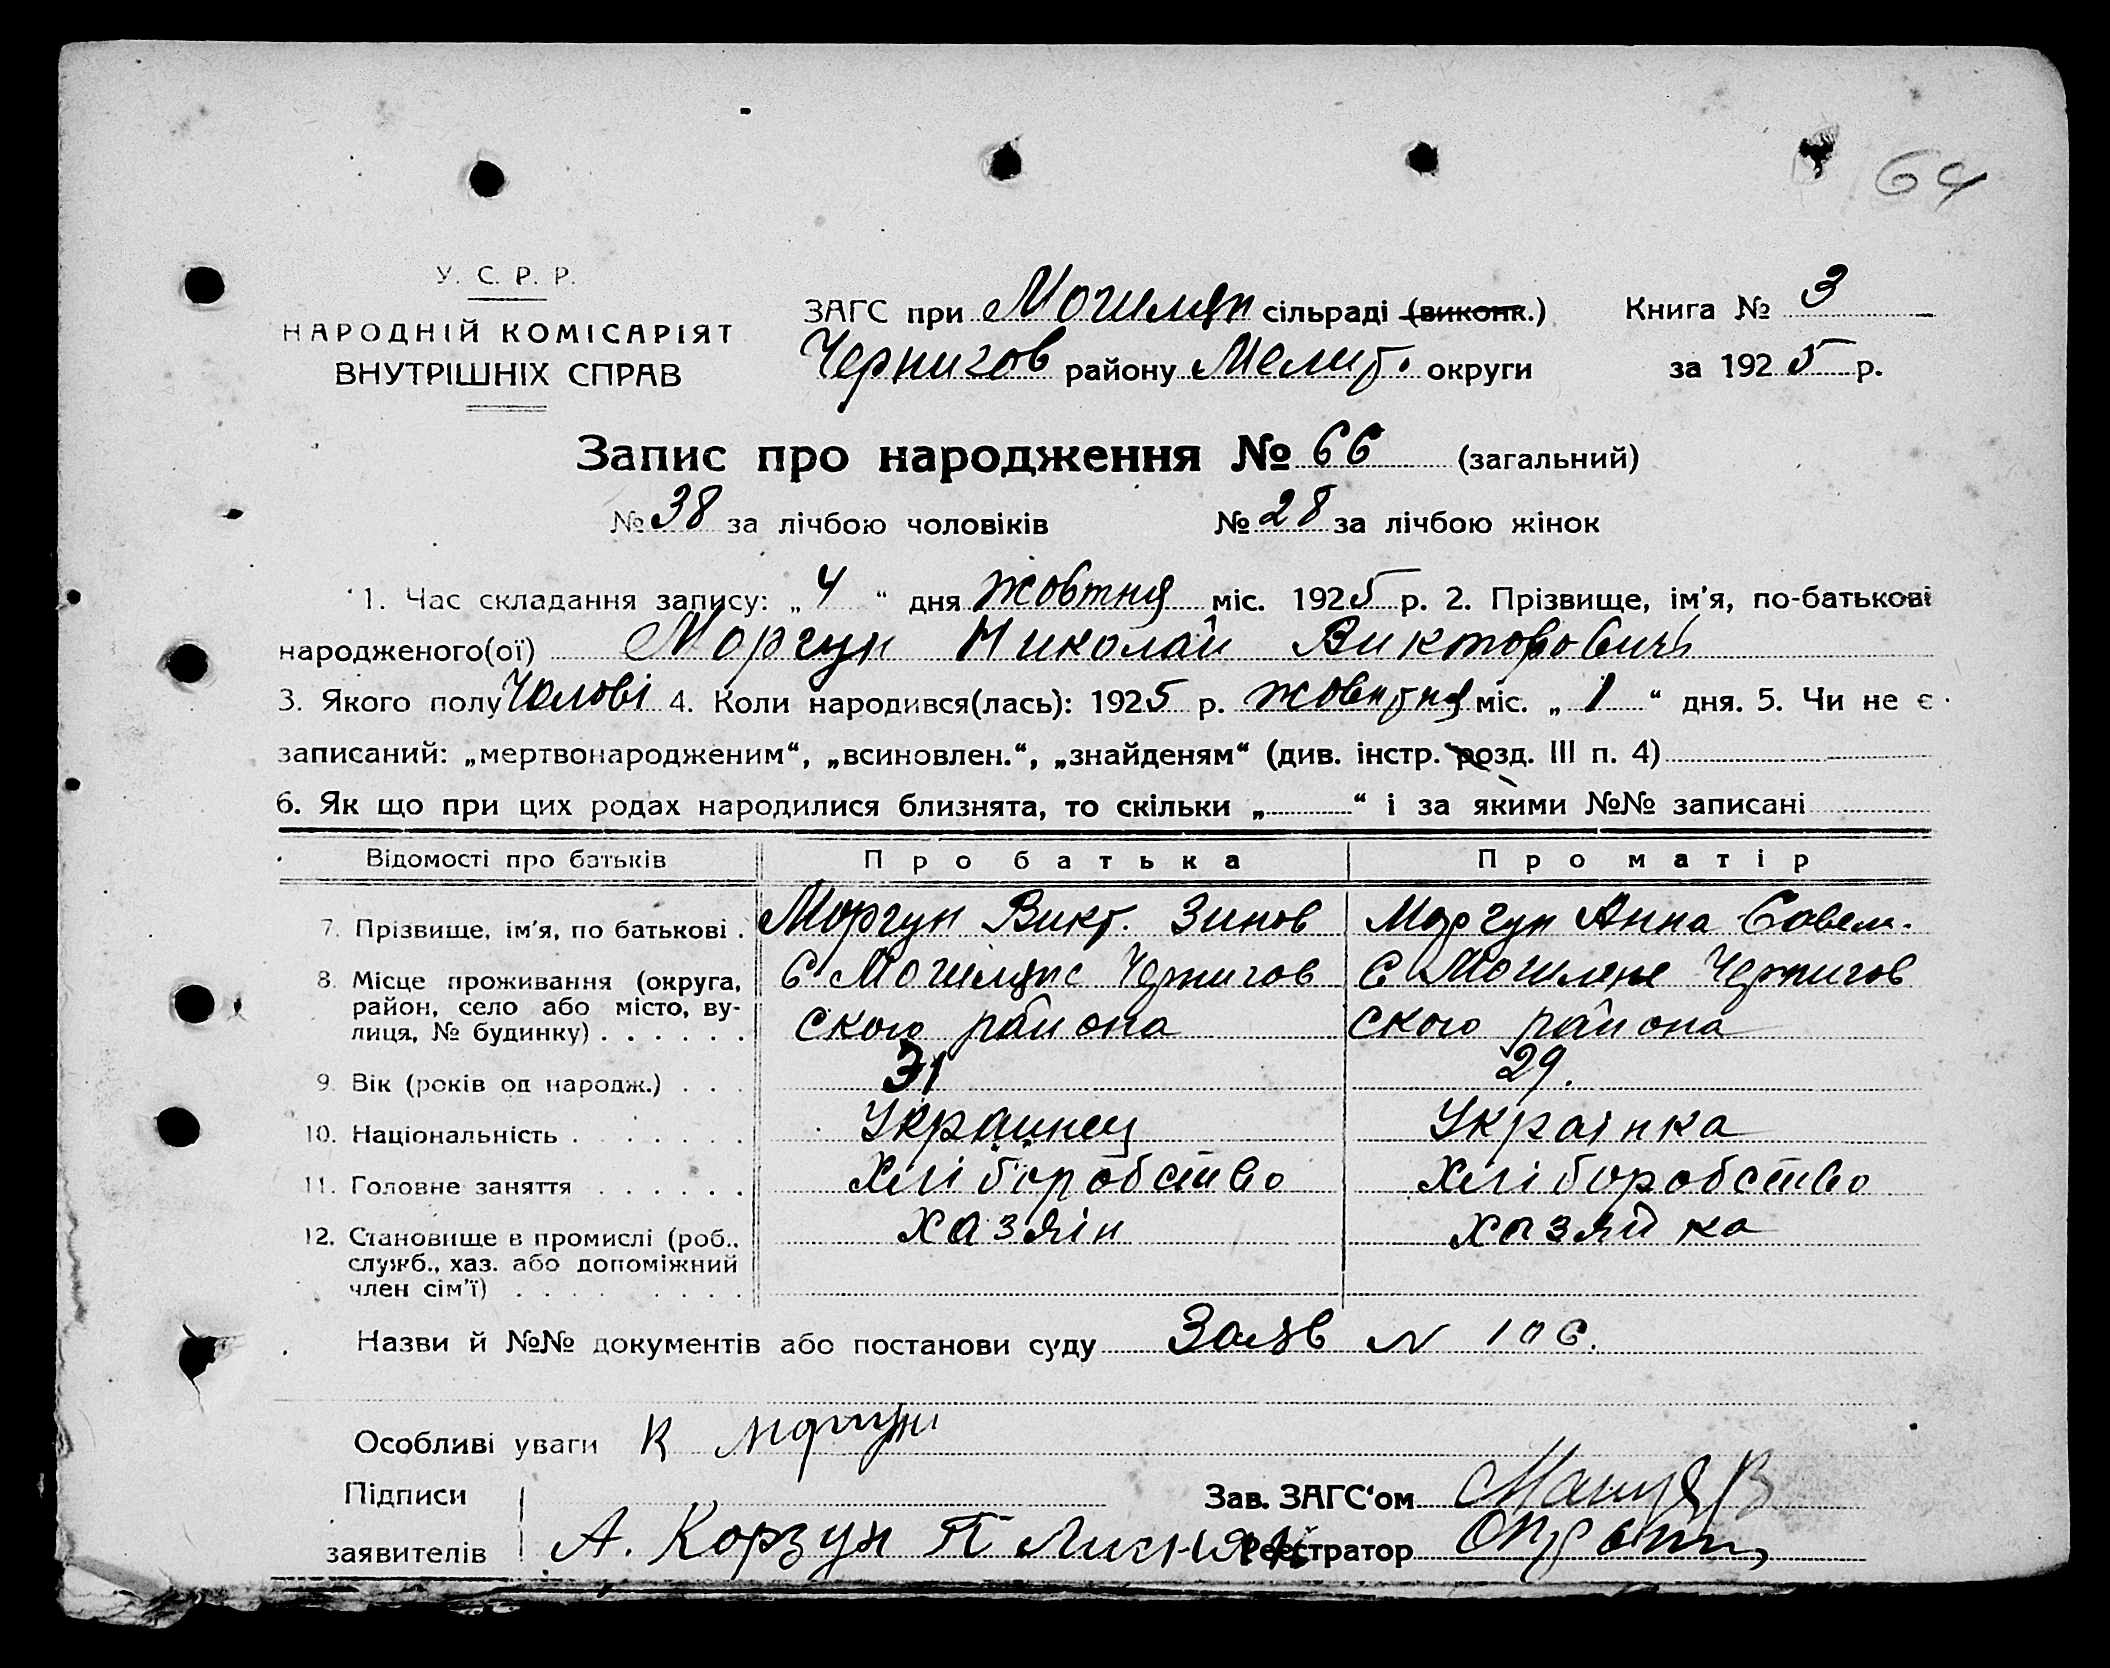 64
У. С. Р. Р.
НАРОДНІЙ КОМІСАРІЯТ
ВНУТРІШНІХ СПРАВ
ЗАГС при Могилян сільраді (виконк.) Книга № 3
Чернигов району Мелит. округи за 1925 р.
Запис про народження № 66 (загальний)
№ 38 за лічбою чоловіків № 28 за лічбою жінок
1. Час складання запису: „ 4 “ дня жовтня міс. 1925 р. 2. Прізвище, ім'я, по-батькові
народженого(ої) Моргун Николай Викторовичь
3. Якого полу Чолові 4. Коли народився(лась): 1925 р. жовтня міс. „ 1 “ дня. 5. Чи не є
записаний: „мертвонародженим“, „всиновлен.“, „знайденям“ (див. інстр. розд. III п. 4)
6. Як що при цих родах народилися близнята, то скільки „ “ і за якими №№ записані
Відомості про батьків Про батька Про матір
7. Прізвище, ім'я, по батькові . Моргун Викт. Зинов Моргун Анна Савел.
8. Місце проживання (округа, С Чернигов С Чернигов
район, село або місто, ву- ского района ского района
лиця, № будинку) . . . . . .
9. Вік (років од народж.) . . . 31 29.
10. Національність . . . . . . Украинец Українка
11. Головне заняття . . . . . . Хліборобство Хліборобство
12. Становище в промислі (роб., хазяін хазяйка
служб., хаз. або допоміжний
член сім'ї) . . . . . . . .
Назви й №№ документів або постанови суду Заяв N 106.
Особливі уваги К Моргун
Підписи Зав. ЗАГС'ом
заявителів А. Корзун П Лисняк Реєстратор